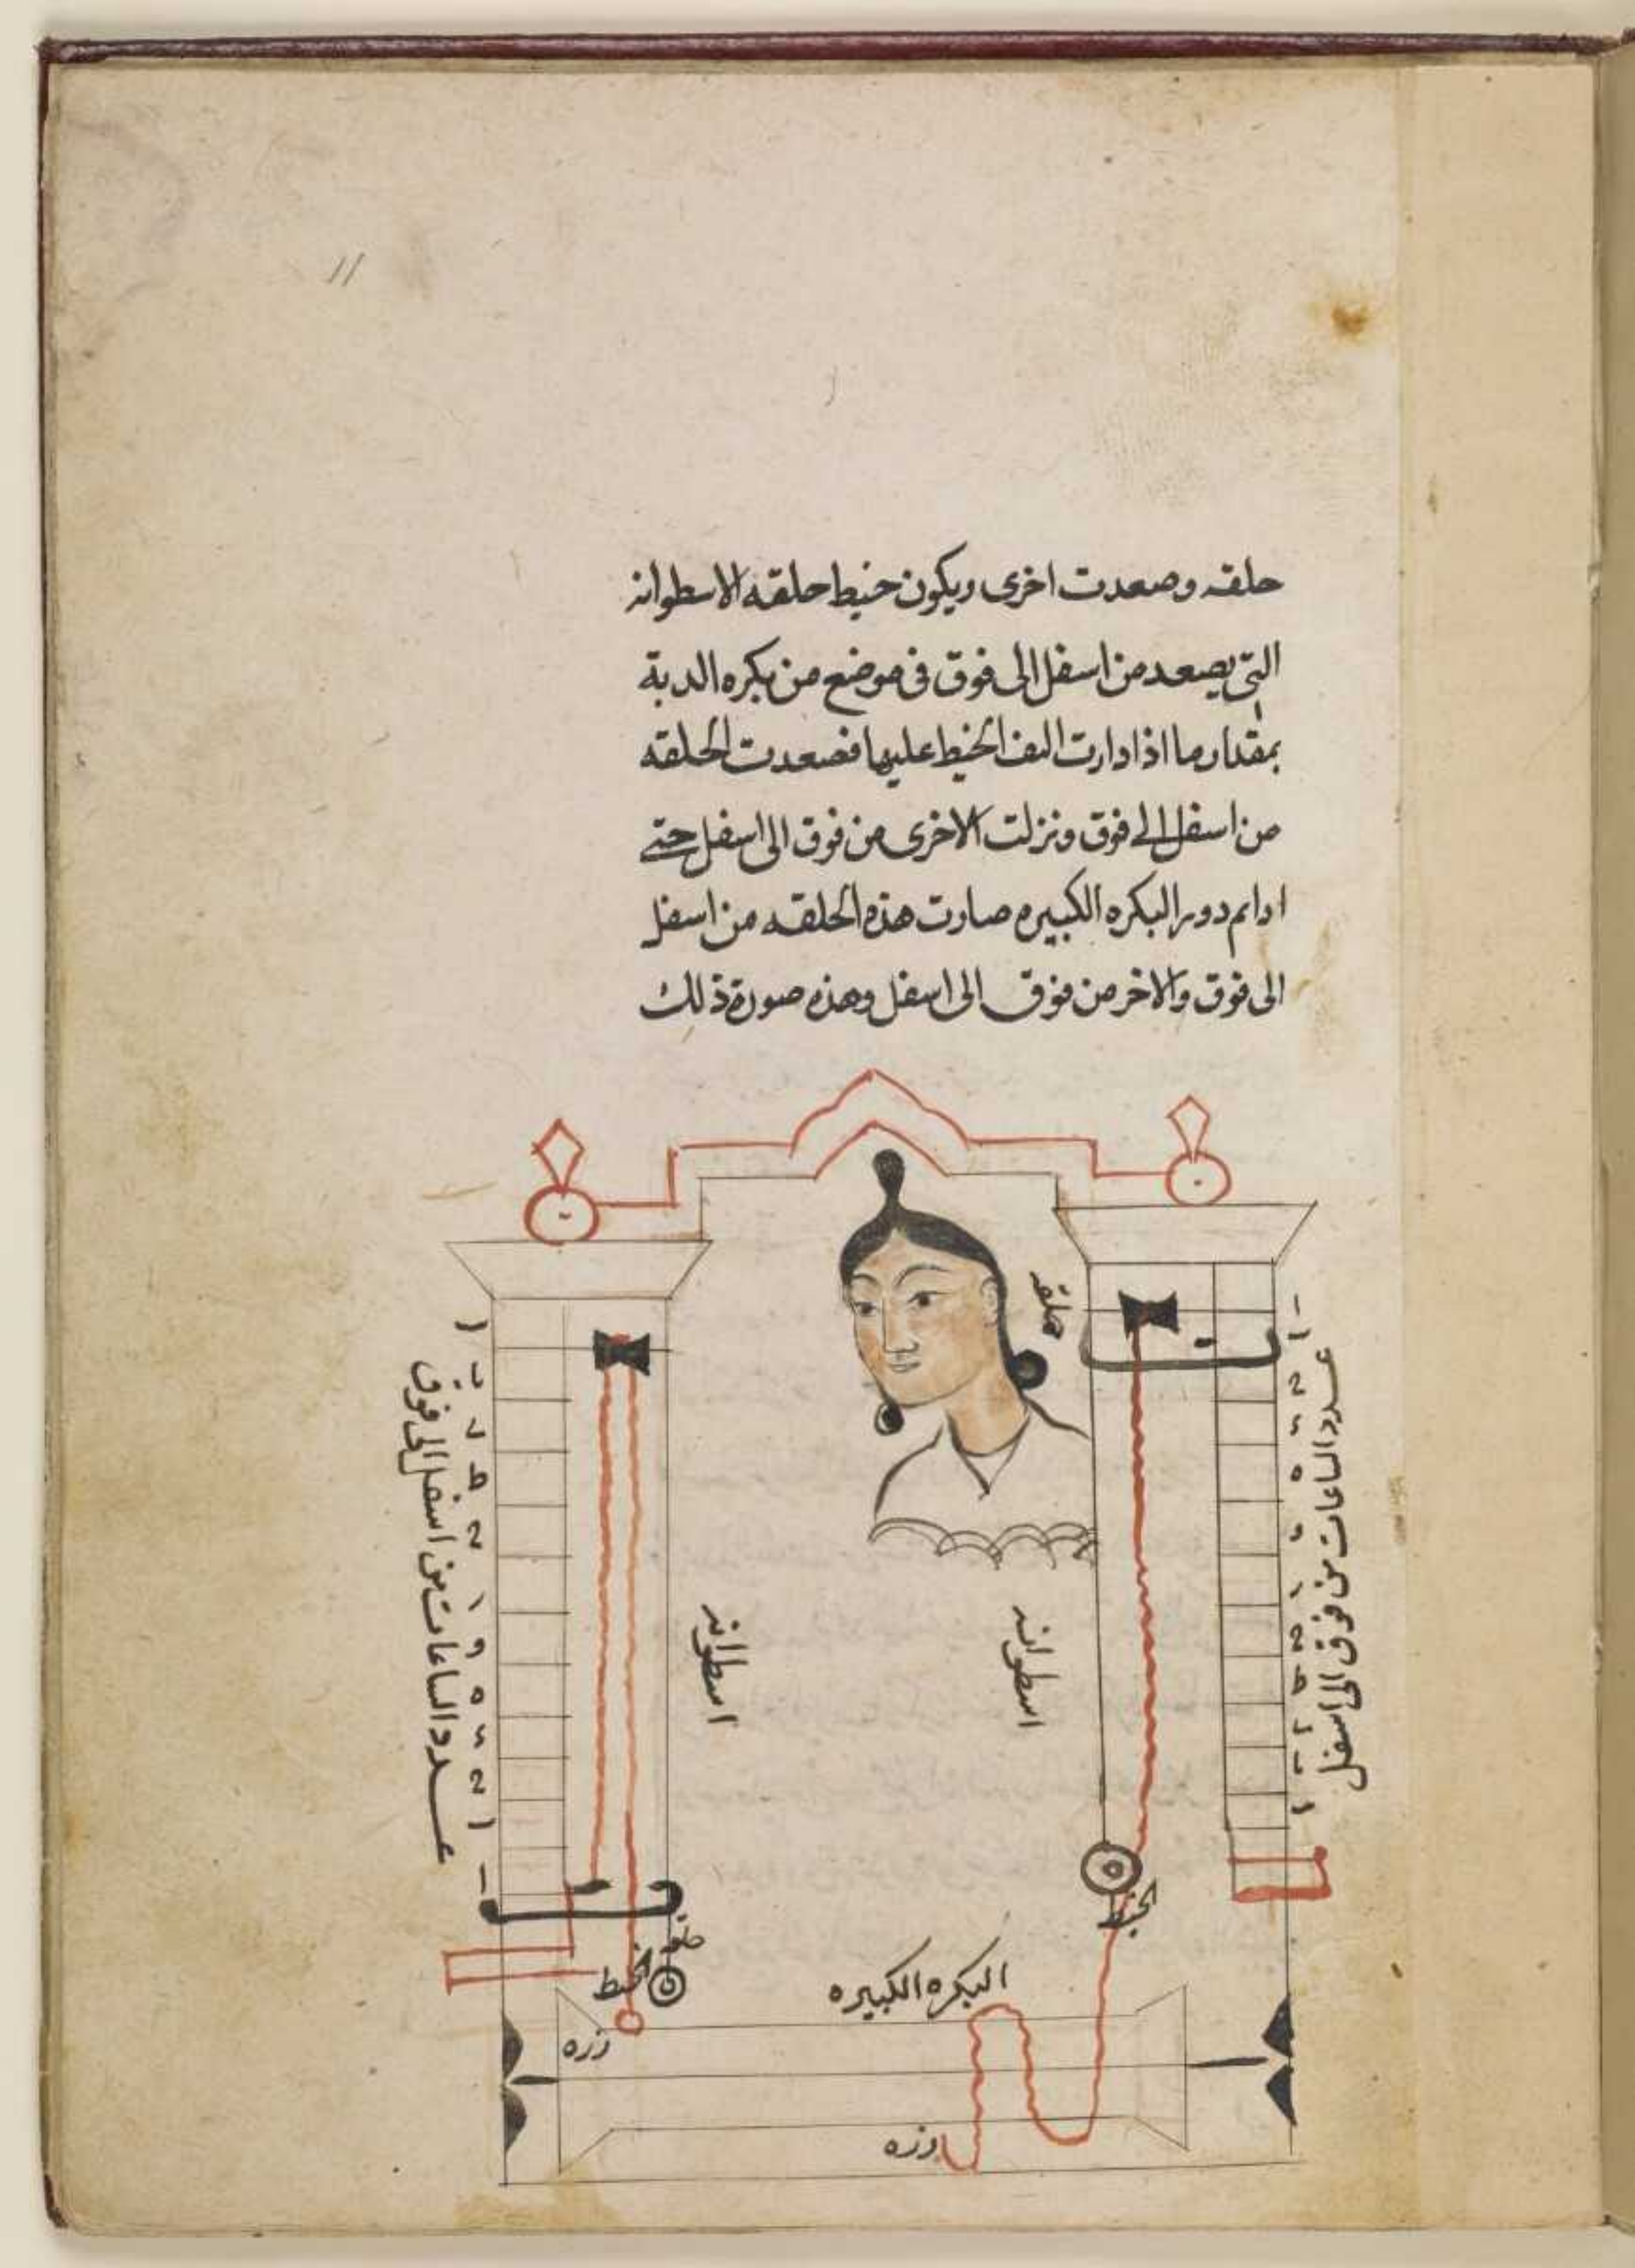 11
حلقه وصعدت اخرى ويكون خيط حلقه الاسطوانه
التى يصعد من اسفل الى فوق فى موضع من بكره الدبة
بمقدار ما اذا دارت التف الخيط عليها فصعدت الحلقه
من اسفل الى فوق ونزلت الاخرى من فوق الى اسفل حتى
اداتم دور البكره الكبيره صارت هذه الحلقه من اسفل
الى فوق والاخر من فوق الى اسفل وهذه صورة ذلك
حلقه
عدد الساعات من فوق الى اسفل
عدد الساعات من اسفل الى فوق
اسطوانه
اسطوانه
الخيط
حلقه
الخيط
البكره الكبيره
زره
زره